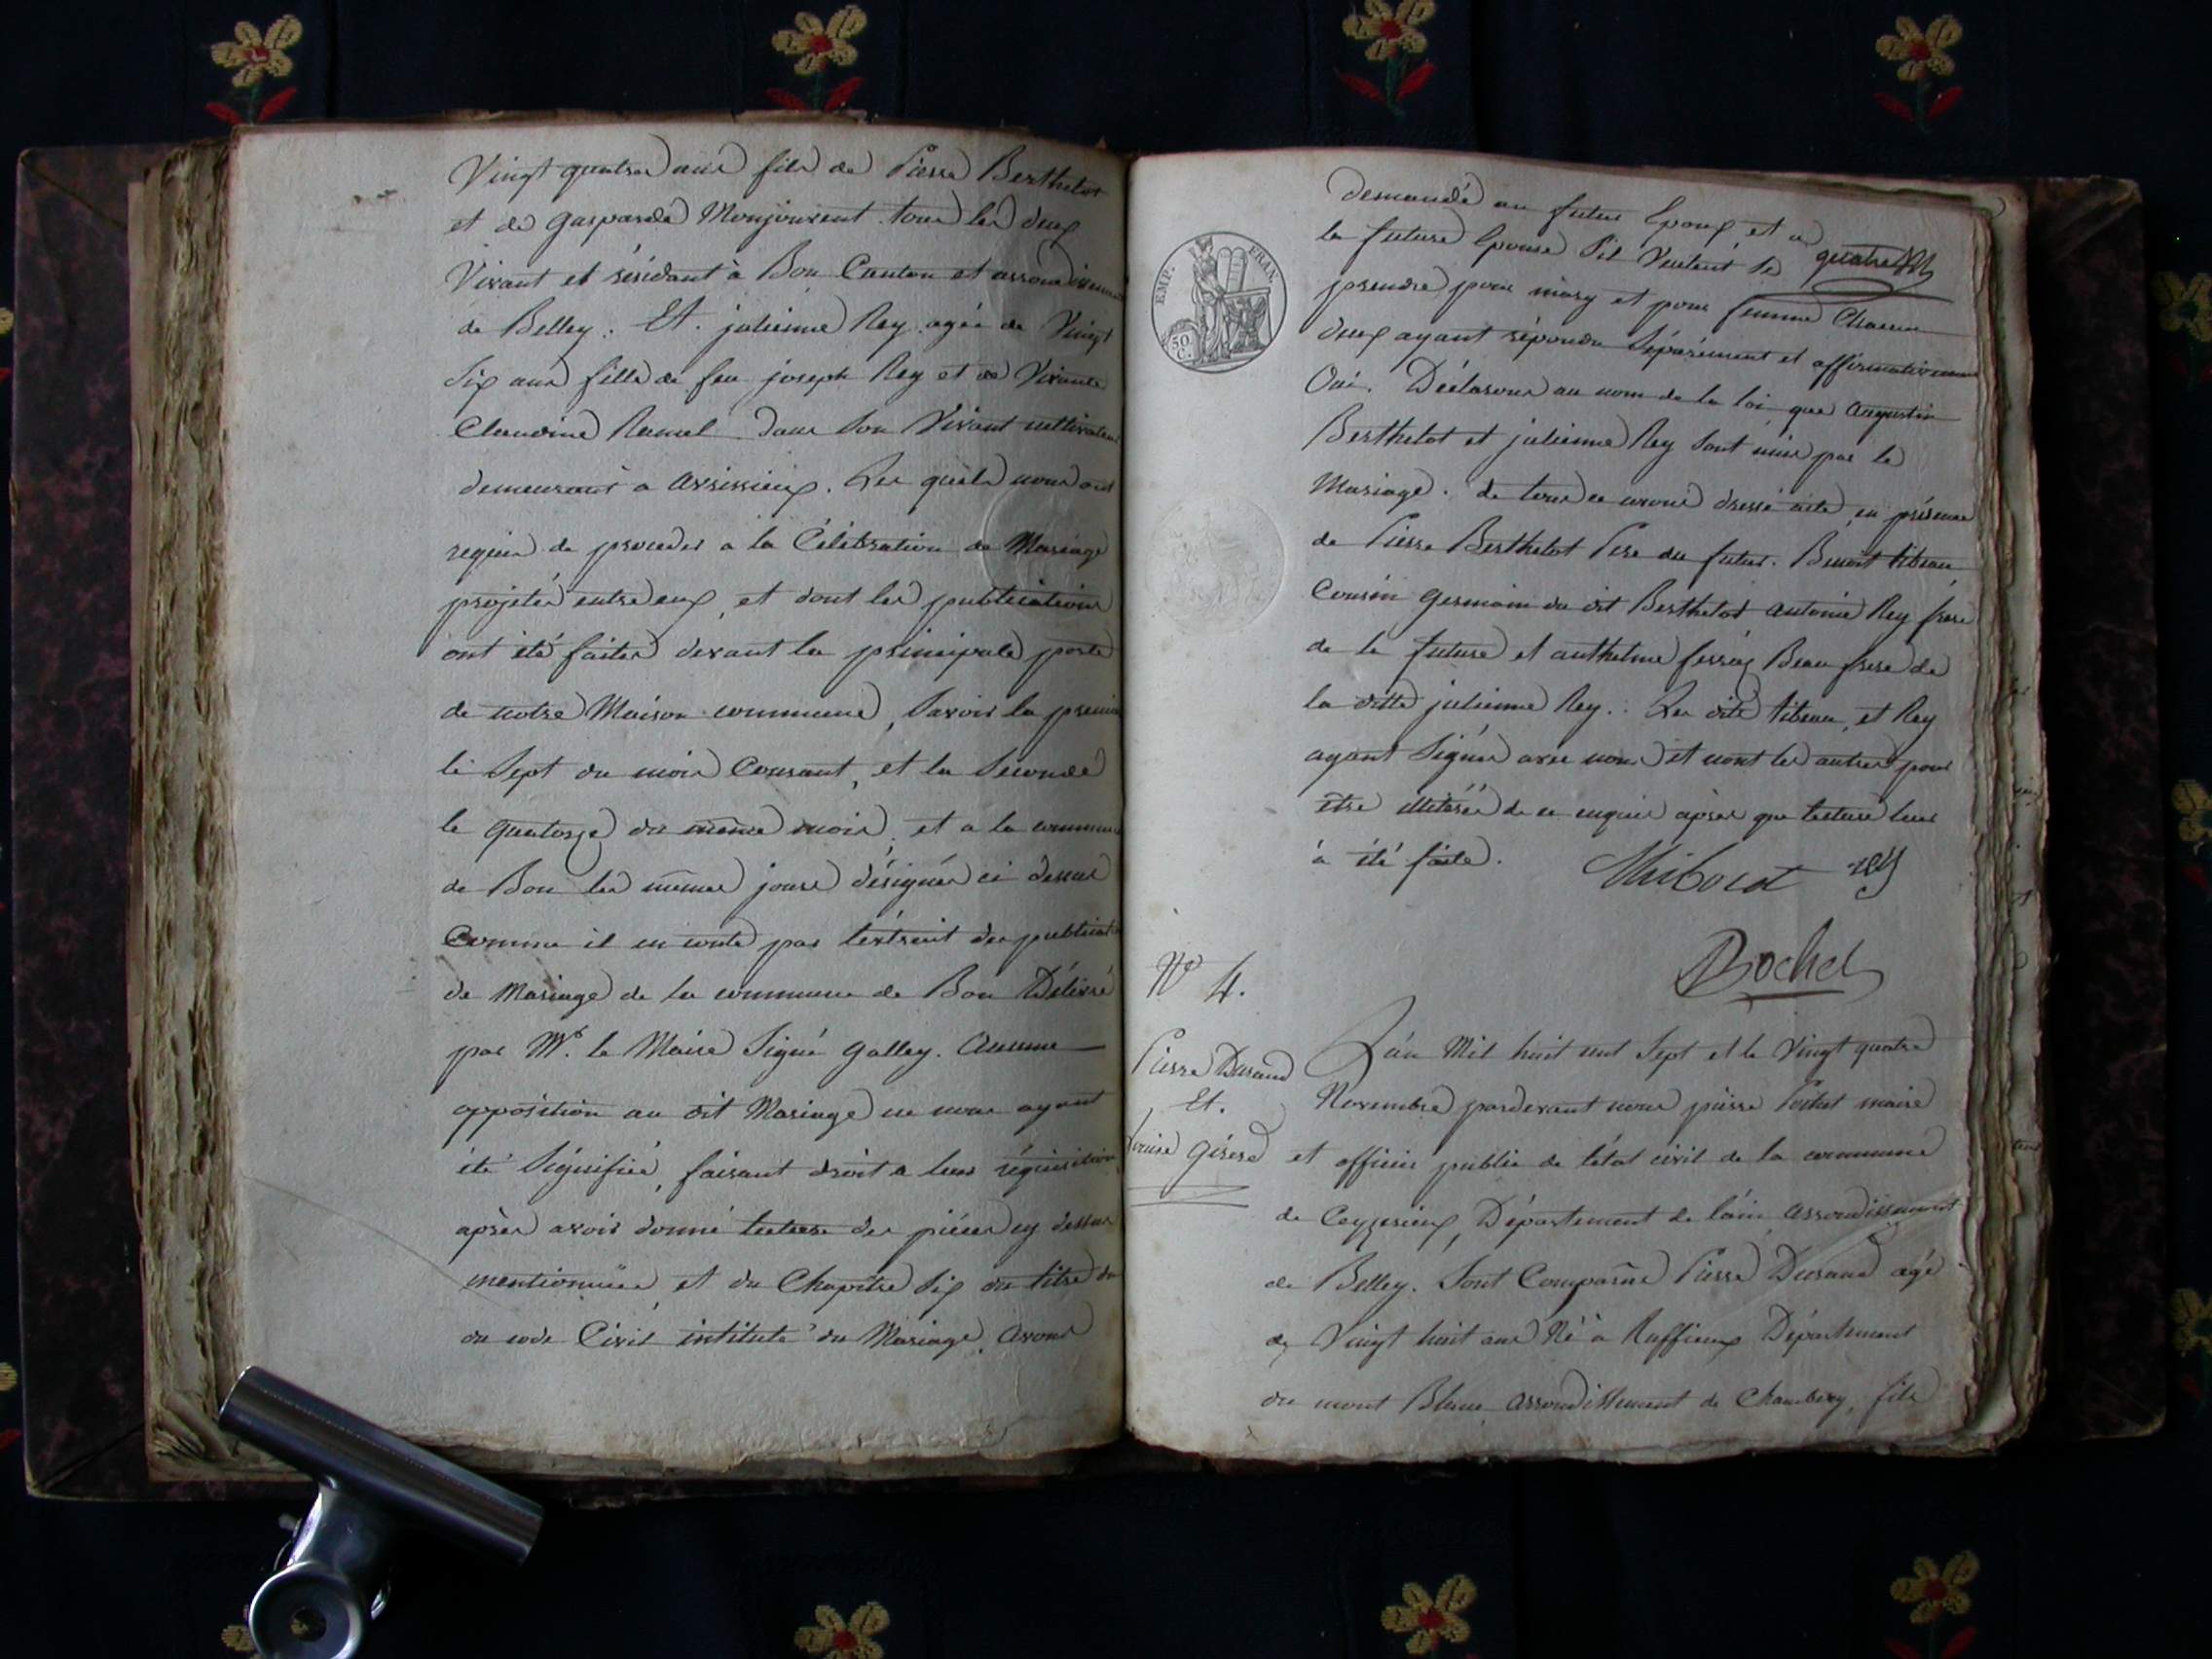 Vingt quatre ans fils de Pierre Berthelot
et de gasparde Monjouvent tous les deux
Vivant et résidant à Bon Canton et arrondissement
de Belley. Et. julienne Rey agée de Vingt
Six ans fille de feu joseph Rey et de Vivante
Claudine Ramel dans Son Vivant cultivateur
demeurant a arvissieux. Les quels nous ont
requis de proceder a la Célébration de Mariage
projetés entre eux, et dont les publications
ont été faites devant la principale porte
de notre Maison commune, Savoir la premiere
le Sept du mois Courant, et la Seconde
le quatorze du même mois, et a la commune
de Bon les mêmes jours désignés ci dessus
Comme il en conte par l'éxtrait des publicat
de Mariage de la commune de Bon Délivré
par Mr. le Maire Signé galley. Aucune
opposition au dit Mariage ne nous ayant
été Signifiée, faisant droit a leur réquisition,
après avoir donné lecture des pièces cy dessus
mentionnées et du Chapitre Six du titre du
du code Civil intitulé du Mariage, avons
EMP. FRAN.
50. C.
demandé au futur Epoux et a
la future Epouse S'il Veulent se
quatre
prendre pour mary et pour femme Chacun
deux ayant répondu Séparément et affirmativement
Oui. Déclarons au nom de la loi que augustin
Berthelot et julienne Rey Sont unis par le
Mariage. de tous ce avons dressé acte, en présence
de Pierre Berthelot Pere du futur. Benoit tibeau
Cousin germain du dit Berthelot antoine Rey frere
de la future et anthelme Beau frere de
la ditte julienne Rey. Les dits tibeau, et Rey
ayant Signés avec nous et nont les autres pour
être illiterés de ce enquis après que lecture leur
à été faite.
Thibord rey
Bochet
No 4.
Pierre Durand
Et.
Louise
L'án Mil huit cent Sept et le Vingt quatre
Novembre pardevant nous pierre maire
et officier public de l'état civil de la commune
de Ceyzerieux, Département de l'ain arrondissement
de Belley. Sont Comparus Pierre Durand agé
de Vingt huit ans Né à Ruffieux Département
du mont Blanc arrondissement de Chambery, fils